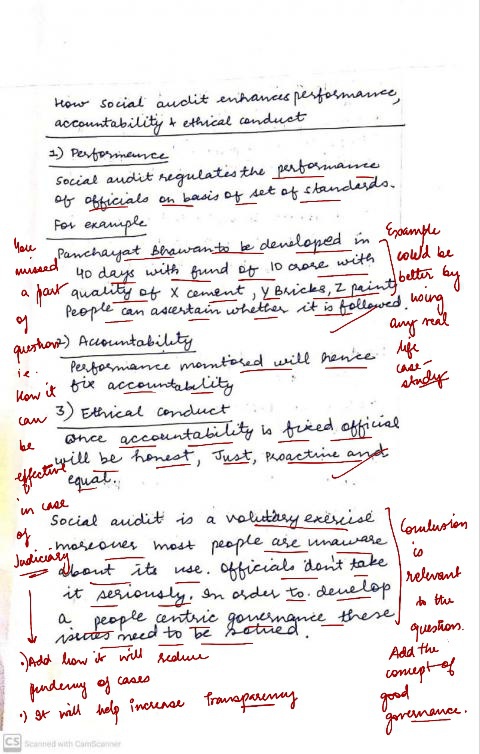 How social audit enhances performance,
accountability & ethical conduct
1) Performance
Social audit regulates the performance
of officials on basis of set of standards.
For example
Panchayat Bhawan to be developed in
40 days with fund of 10 crore with
quality of X cement, Y Bricks, Z paint
People can ascertain whether it is followed
2) Accountability
Performance monitored will hence
fix accountability
3) Ethical conduct
Once accountability is fixed official
will be honest, Just, Proactive and
equal.
Social audit is a voluntary exercise
moreover most people are unaware
about its use. Officials don't take
it seriously. In order to develop
a people centric governance these
issues need to be solved.
You
missed
a part
of
question
i.e.
How it
can
be
effective
in case
of
Judiciary
.) Add how it will reduce
pendency of cases
.) It will help increase Transparency
Example
could be
better by
using
any real
life
case-
study
Conclusion
is
relevant
to the
question.
Add the
concept of
good
governance.
CS Scanned with CamScanner